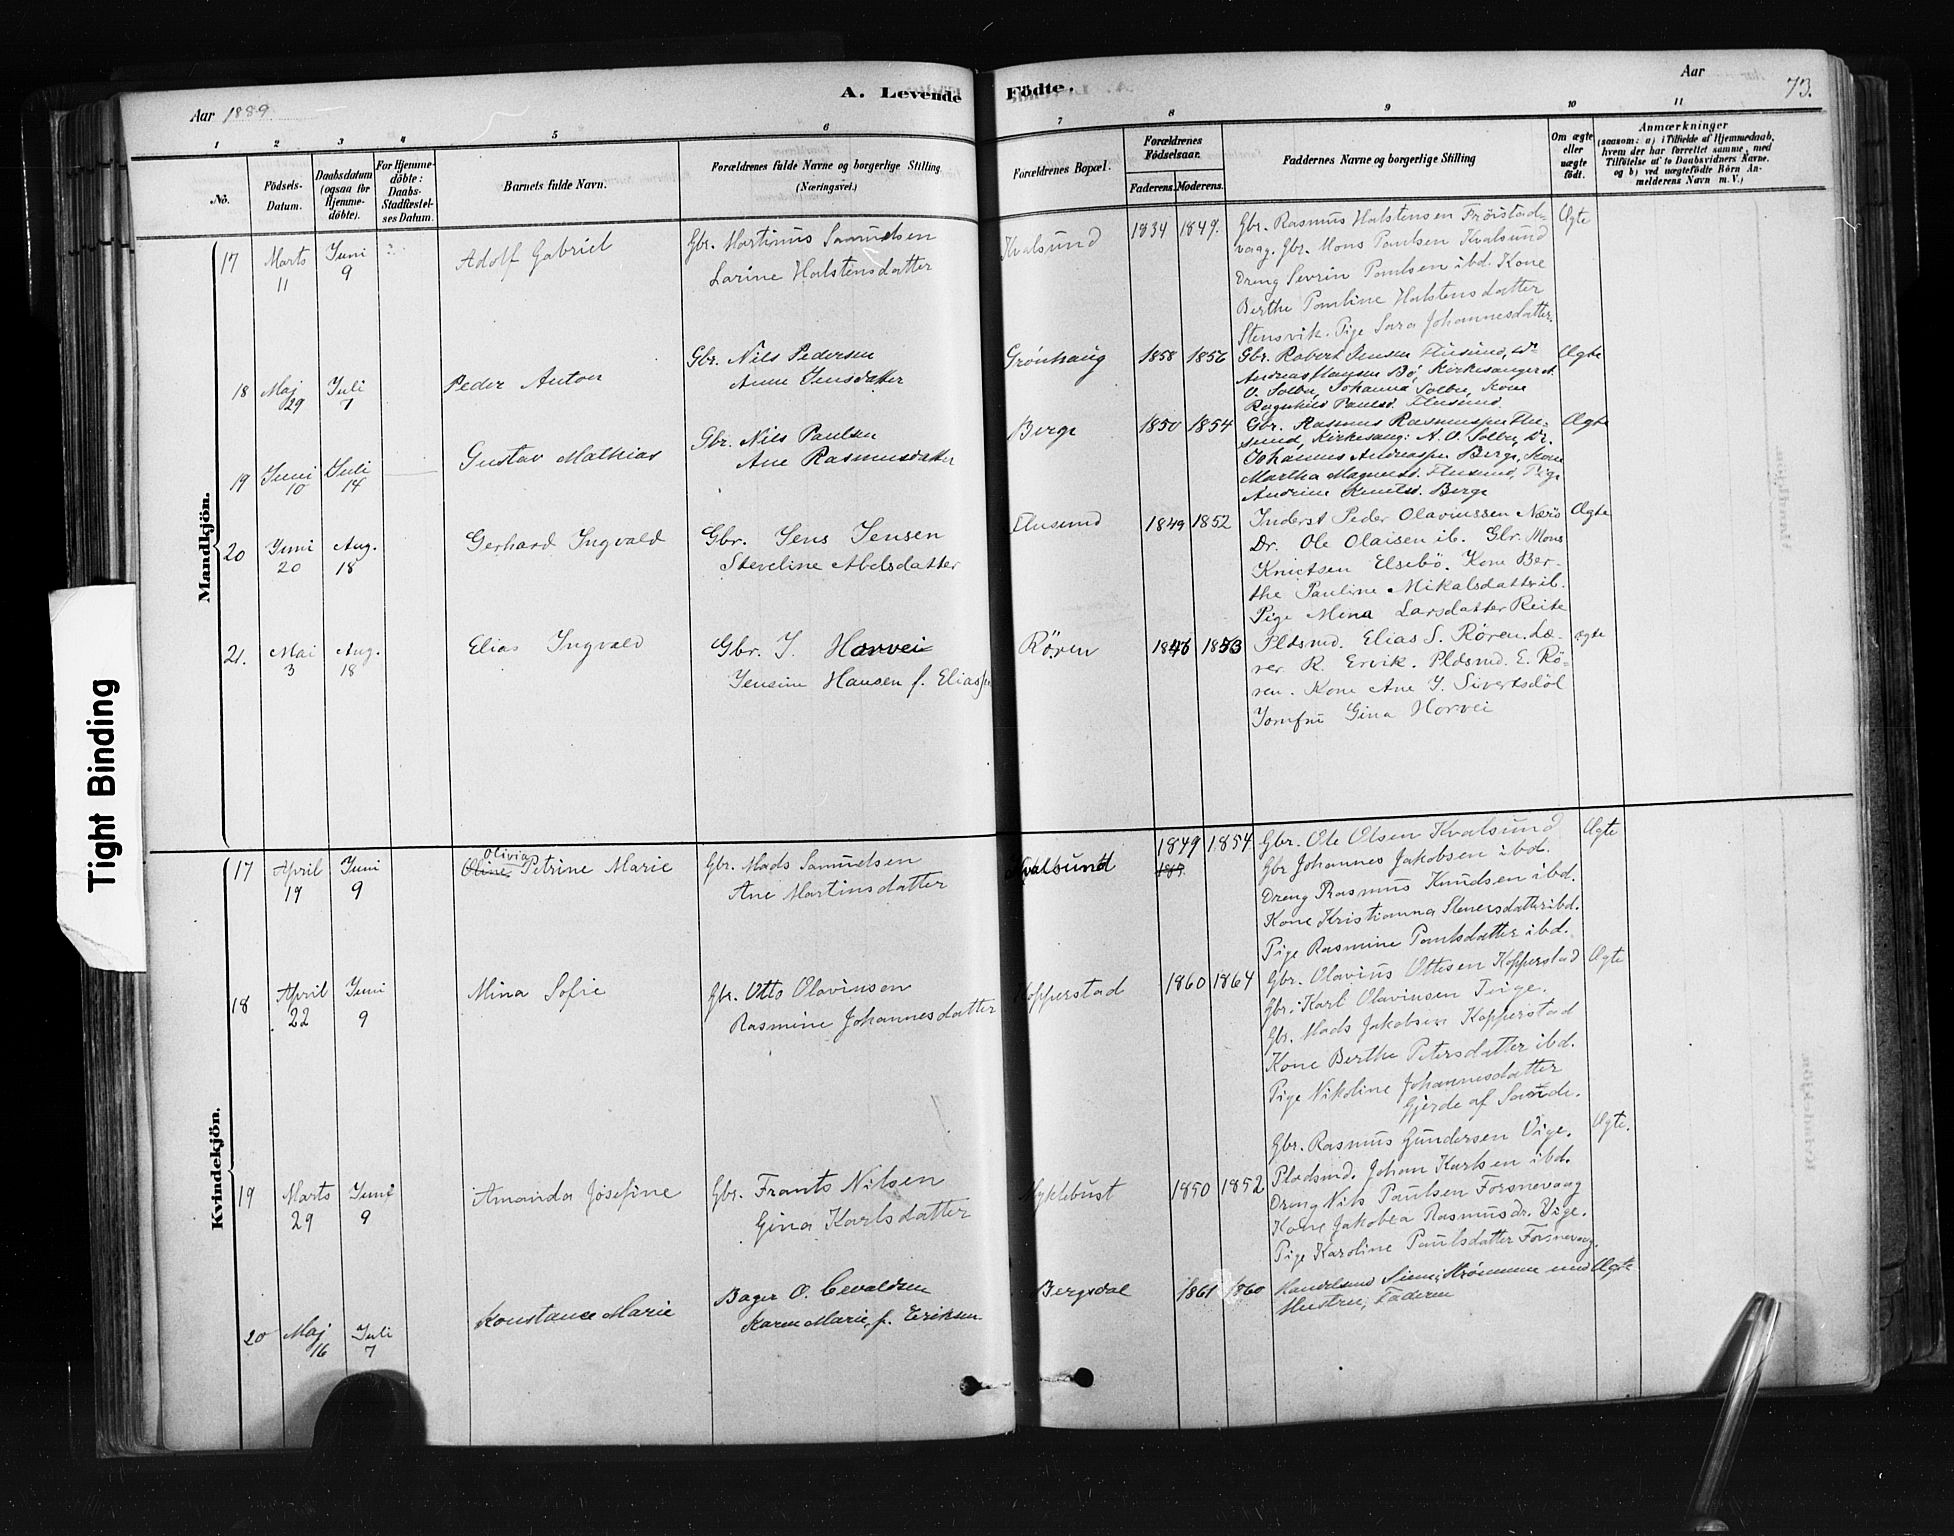 Aar 1889
A. Levende
Födte.
Aar
73.
1 2 3 4 5 6 7 8 9 10 11
No.
Födsels-
Datum.
Daabsdatum
(ogsaa for
Hjemme-
döbte).
For Hjemme-
döbte:
Daabs-
Stadfæstel-
ses Datum.
Barnets fulde Navn.
Forældrenes fulde Navne og borgerlige Stilling
(Næringsvei.)
Forældrenes Bopæl.
Forældrenes
Födselsaar.
Faderens. Moderens.
Faddernes Navne og borgerlige Stilling
Om ægte
eller
uægte
födt.
Anmærkninger
(saasom: a) i Tilfælde af Hjemmedaab,
hvem der har forrettet samme, med
Tilföielse af to Daabsvidners Navne.
og b) ved uægtefödte Börn An-
melderens Navn m.V.)
Mandkjön.
17
Marts
11
Juni
9
Adolf Gabriel
Gbr. Martinus Samuelsen
Larine Halstensdatter
Kvalsund
1834 1849.
Gbr. Rasmus Halstensen Fröistad-
vaag. Gbr. Mons Paulsen Kvalsund
Dreng Sevrin Paulsen ibd. Kone
Berthe Pauline Halstensdatter
Stensvik. Pige Sara Johannesdatter.
Ægte
18
Maj
29
Juli
7
Peder Anton
Gbr. Nils Pedersen
Anne Jensdatter
Grönhaug
1858 1856
Gbr. Robert Jensen Flusund,
Andreas Hansen Bö, Kirkesanger A.
O. Solbu, Johanna Solbu, Kone
Ragnhild Paulsd. Flusund.
Ægte
19
Juni
10
Juli
14
Gustav Mathias
Gbr. Nils Paulsen
Ane Rasmusdatter
Berge
1850 1854
Gbr. Rasmus Rasmussen Flu-
sund, Kirkesang: A. O. Solbu, Dr.
Johannes Andreass Berge, Kone
Martha Magnesd. Flusund, Pige
Andrine Knutsd. Berge
Ægte
20
Juni
20
Aug.
18
Gerhard Ingvald
Gbr. Jens Jensen
Steveline Abelsdatter
Flusund
1849 1852
Inderst Peder Olaviussen Nærö
Dr. Ole Olaisen ib. Gbr. Mons
Knutsen Elsebö. Kone Ber-
the Pauline Mikalsdatter ib.
Pige Mina Larsdatter Reite
Ægte
21.
Mai
3
Aug.
18
Elias Ingvald
Gbr. J. Horvei
Jensine Hansen f. Elias
Røren
1846 1853
Pldsmd. Elias S. Røren. Læ-
rer R. Ervik. Pldsmd. E. Rö-
ren. Kone Ane J. Sivertsdöl
Jomfru Gina Horvei
ægte
Kvindekjön.
17
April
19
Juni
9
Olivia
Oline Petrine Marie
Gbr. Mads Samuelsen
Ane Martinsdatter
Kvalsund
1849 1854
Gbr. Ole Olsen Kvalsund
Gbr Johannes Jakobsen ibd.
Dreng Rasmus Knudsen ibd.
Kone Kristianna Stenersdatter ibd.
Pige Rasmine Paulsdatter ibd.
Ægte
18
April
22
Juni
9
Mina Sofie
Gbr. Otto Olaviusen
Rasmine Johannesdatter
Kopperstad
1860 1864
Gbr. Olavius Ottesen Kopperstad
Gbr. Karl Olaviusen Teige.
Gbr. Mads Jakobsen Kopperstad
Kone Berthe Petersdatter ibd.
Pige Nikoline Johannesdatter
Gjerde af Sande.
Ægte
19
Marts
29
Juni
9
Amanda Josefine
Gbr. Frants Nilsen
Gina Karlsdatter
Myklebust
1850 1852
Gbr. Rasmus Gundersen Vige.
Pladsmd. Johan Karlsen ibd.
Dreng Nils Paulsen Forsnevaag
Kone Jakobea Rasmusdr. Vige.
Pige Karoline Paulsdatter Forsnevaag.
Ægte.
20
Maj
16
Juli
7
Konstance Marie
Bager O. Cevaldsen
Karen Marie f. Eriksen
Bergsdal
1861 1860
Handelsmd Strömmen med
Hustru, Faderen
Ægte
Tight Binding